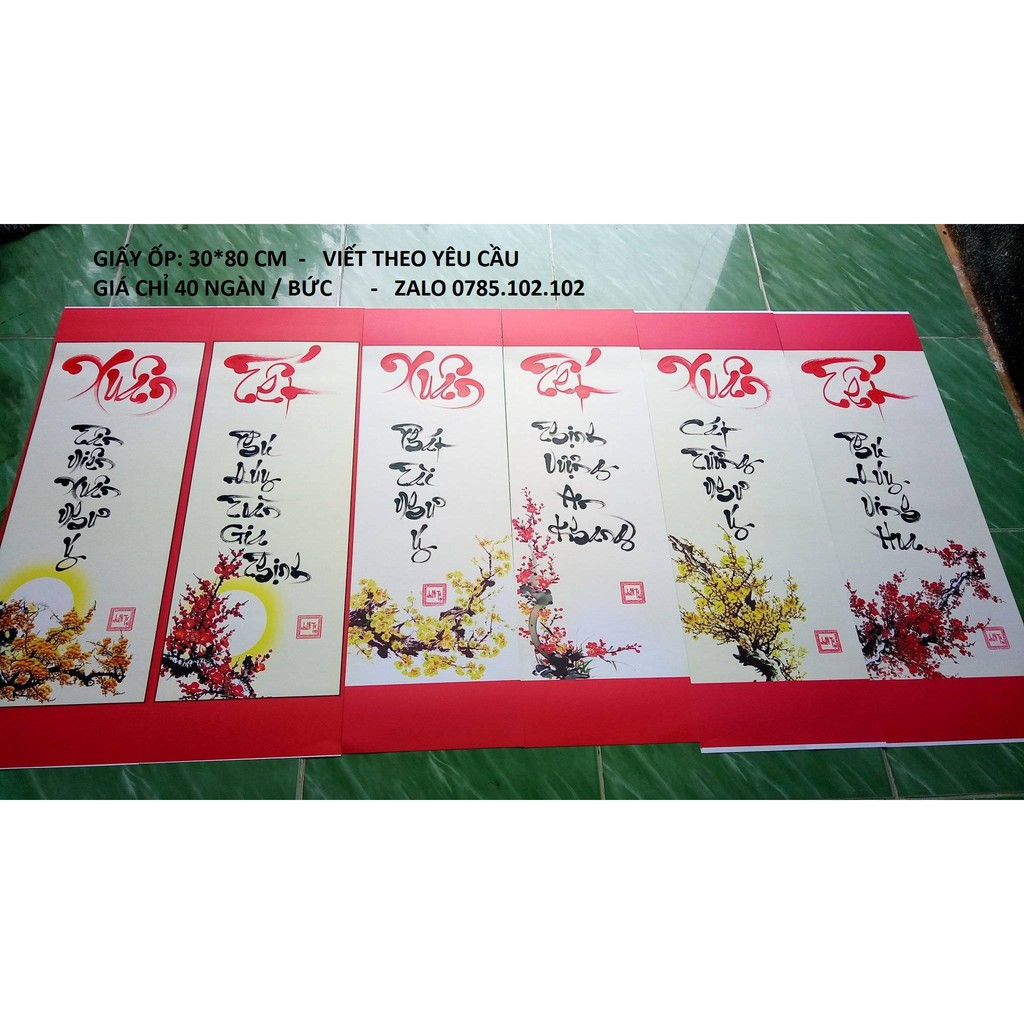 GIẤY ỐP: 30*80 CM - VIẾT THEO YÊU CẦU
GIÁ CHỈ 40 NGÀN / BỨC - ZALO 0785.102.102
Xuân
Tân
Niên
Xuân
Như
Ý
Tết
Phú
Túy
Toàn
Gia
Thịnh
Xuân
Phát
Tài
Như
Ý
Tết
Thịnh
Vượng
An
Khang
Xuân
Cát
Tường
Như
Ý
Tết
Phú
Vinh
Hoa